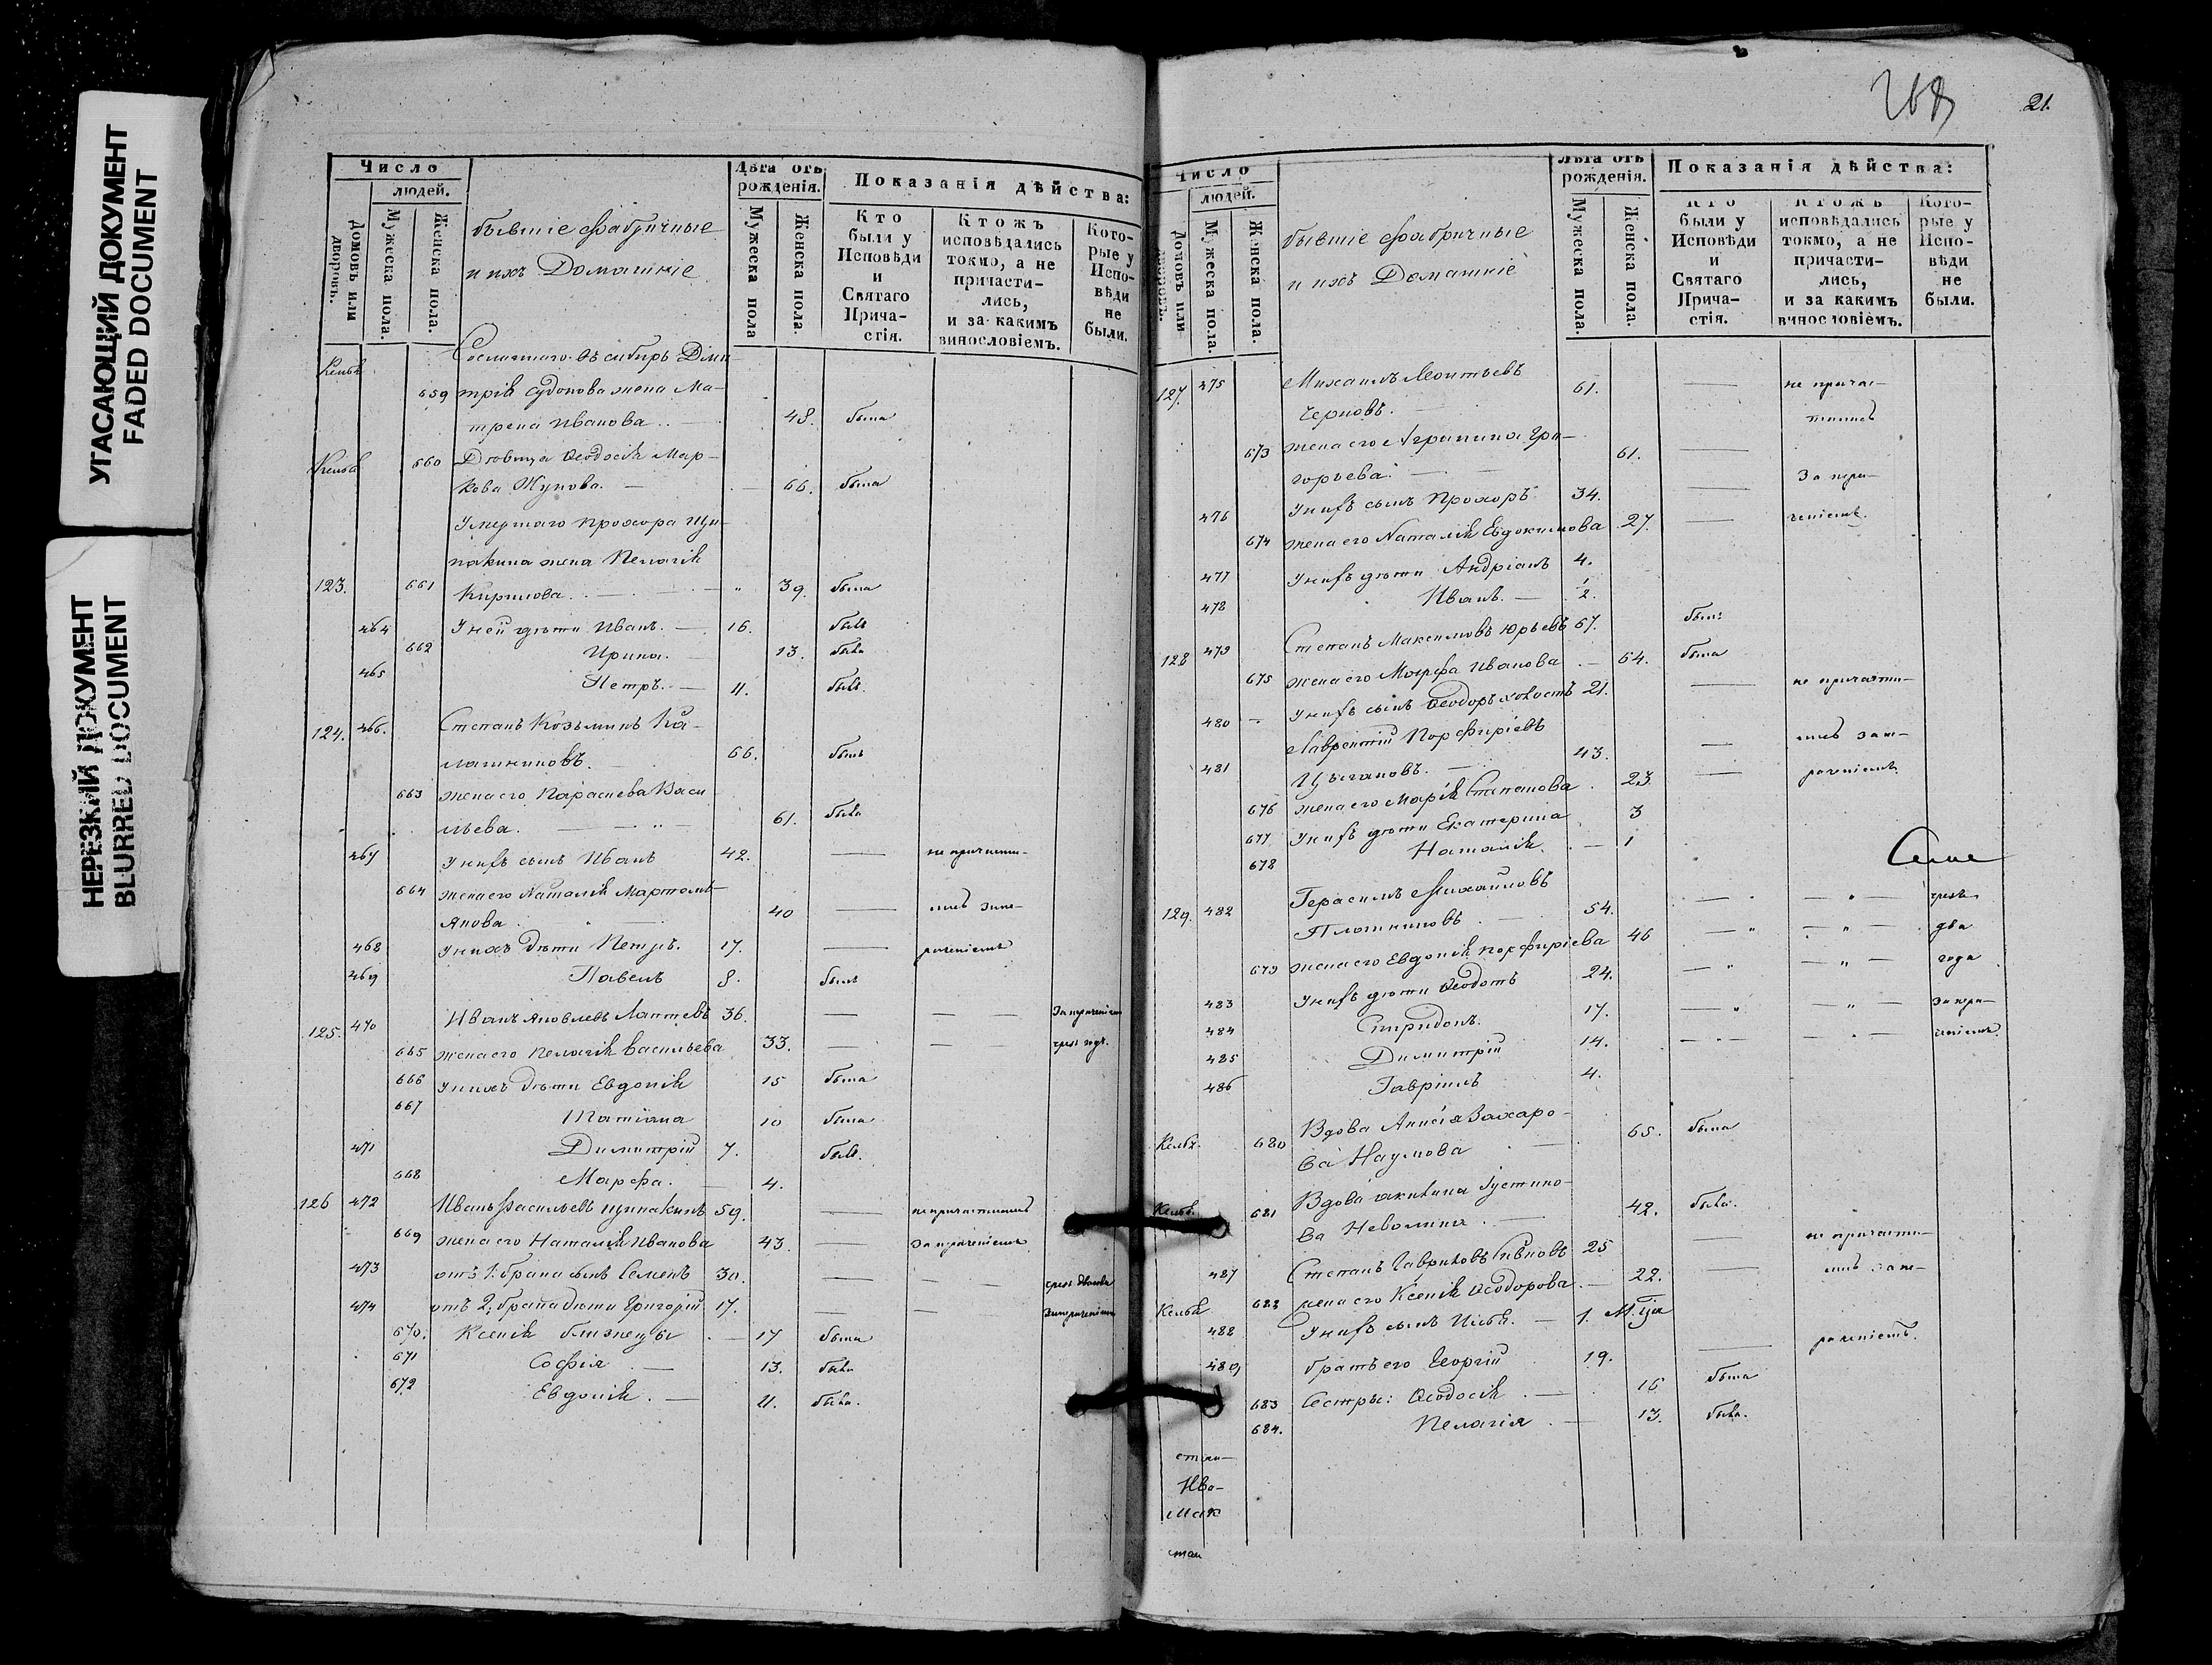 УГАСАЮЩИЙ ДОКУМЕНТ
FADED DOCUMENT
НЕРЕЗКИЙ ДОКУМЕНТ
BLURRED DOCUMENT
Число
людей.
Домовъ или дворовъ.
Мужеска пола.
Женска пола.
бывшіе фабричные
и ихъ Домашніе
Лѣта отъ рожденія.
Мужеска пола
Женска пола.
Показанія дѣйства:
Кто были у Исповѣди и Святаго Прича-стія.
Ктожъ исповѣдались токмо, а не причасти-лись, и за какимъ винословіемъ.
Кото-рые у Испо-вѣди не были.
Сосланнаго въ сибирь Дми
659 трія жена Ма-
трена Иванова 48. была
660 Дѣвица Ѳеодосія Мар-
кова Жукова. 66. была
Умершаго Прохора
жена Пелагія
123. 661 Кирилова. 39. была
464 У ней дѣти Иванъ. 16. былъ
662 Ирина. 13. была
465 Петръ. 11. былъ.
124. 466. Степанъ Козьминъ Ка-
лашниковъ. 66. былъ
663 жена его Параскева Васи
льева. 61. была
467 У нихъ сынъ Иванъ 42. не причасти-
664 жена его Наталія Мартемь-
янова 40 лись за не-
468 У нихъ дѣти Петръ. 17. раченіемъ
469 Павелъ 8. былъ
125. 470 Иванъ Яковлевъ Лаптевъ 36. За нераченіем
665 жена его Пелагія Васильева 33. чрез годъ.
666 У нихъ дѣти Евдокія 15 была
667 Татіана 10 была
471 Димитрій 7. былъ.
668 Марфа. 4.
126 472 Иванъ Васильевъ 59. не причастились
669 жена его Наталія Иванова 43. за нераченіемъ
473 отъ 1. брака сынъ Семенъ 30.
474 отъ 2. брака дѣти Григорій 17. За нераченіемъ
670. Ксенія близнецы 17 была
671 Софія 13. была
672 Евдокія. 11. была.
268
21.
Число
людей.
Домовъ или
Мужеска пола.
Женска пола.
бывшіе фабричные
и ихъ Домашніе
Лѣта отъ рожденія.
Мужеска пола.
Женска пола.
Показанія дѣйства:
Кто были у Исповѣди и Святаго Прича-стія.
Ктожъ исповѣдались токмо, а не причасти-лись, и за какимъ винословіемъ.
Кото-рые у Испо-вѣди не были.
127. 475 Михаилъ Леонтьевъ 61. не причас-
Черновъ. тились
673 жена его Агрипина Гри-
горьева. 61. За нера-
476 У нихъ сынъ Прохоръ 34.
674 жена его Наталія Евдокимова 27. ченіемъ.
477 У нихъ дѣти Андріанъ 4.
478 Иванъ. 1/2.
128 479 Степанъ Максимовъ Юрьевъ 67. былъ
675 жена его Марфа Иванова 64. была
480 У нихъ сынъ Ѳеодоръ холостъ 21. не причасти-
Лаврентій Порфиріевъ
481 Цыгановъ. 43. лись за не-
676 жена его Марія Степанова 23 раченіемъ.
677 У нихъ дѣти Екатерина 3
678 Наталія. 1
129. 482 Герасимъ Михайловъ
Плотниковъ 54. чрезъ
679 жена его Евдокія Порфиріева 46 два
483 У нихъ дѣти Ѳеодотъ 24. года
484 Спиридонъ. 17. за нера-
485 Димитрій 14. ченіемъ.
486 Гавріилъ 4.
680 Вдова Анисія Захаро-
ва Наумова 65. была
681 Вдова Акилина Іустино-
ва Неволина. 42. была.
487 Степанъ Гавриловъ 25 не причасти-
682 жена его Ксенія Ѳеодорова 22. лись за не-
488 У нихъ сынъ Илья. 1. М-ца
489 братъ его Георгій 19. раченіемъ.
683 Сестры: Ѳеодосія 16 была
684. Пелагія 13. была.